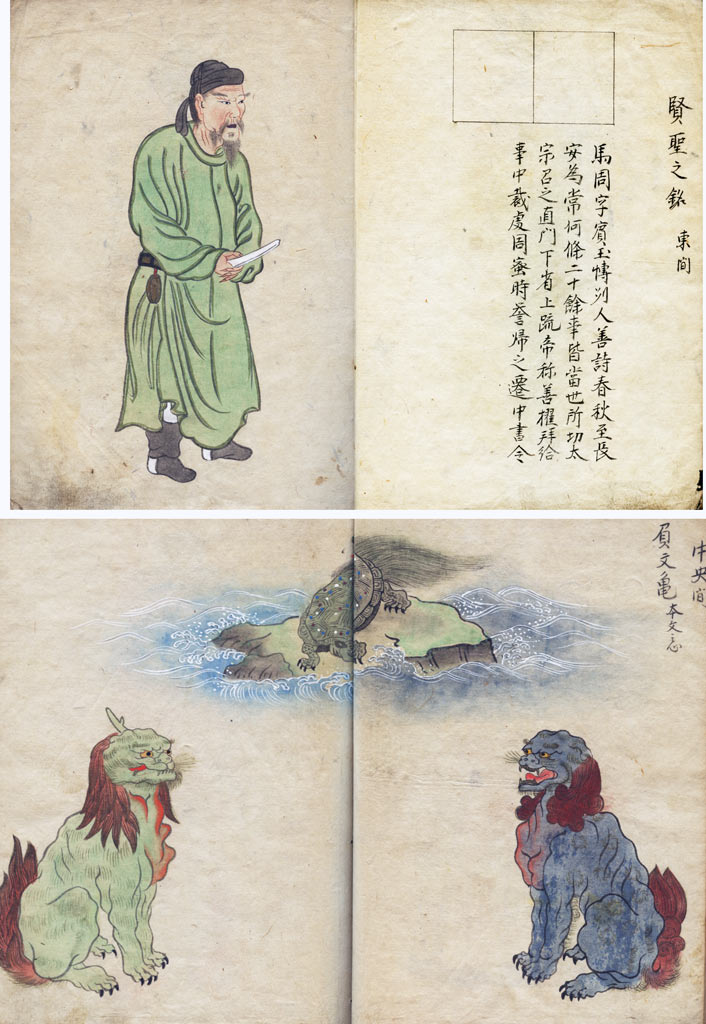 賢聖之銘 東間
馬周字賓玉愽州人善詩春秋至長
安為常何條二十餘事皆當世所切太
宗召之直門下省上疏帝称善擢拜給
事中裁處周蜜時誉帰之遷中書令
中央間
負文亀 本文忘